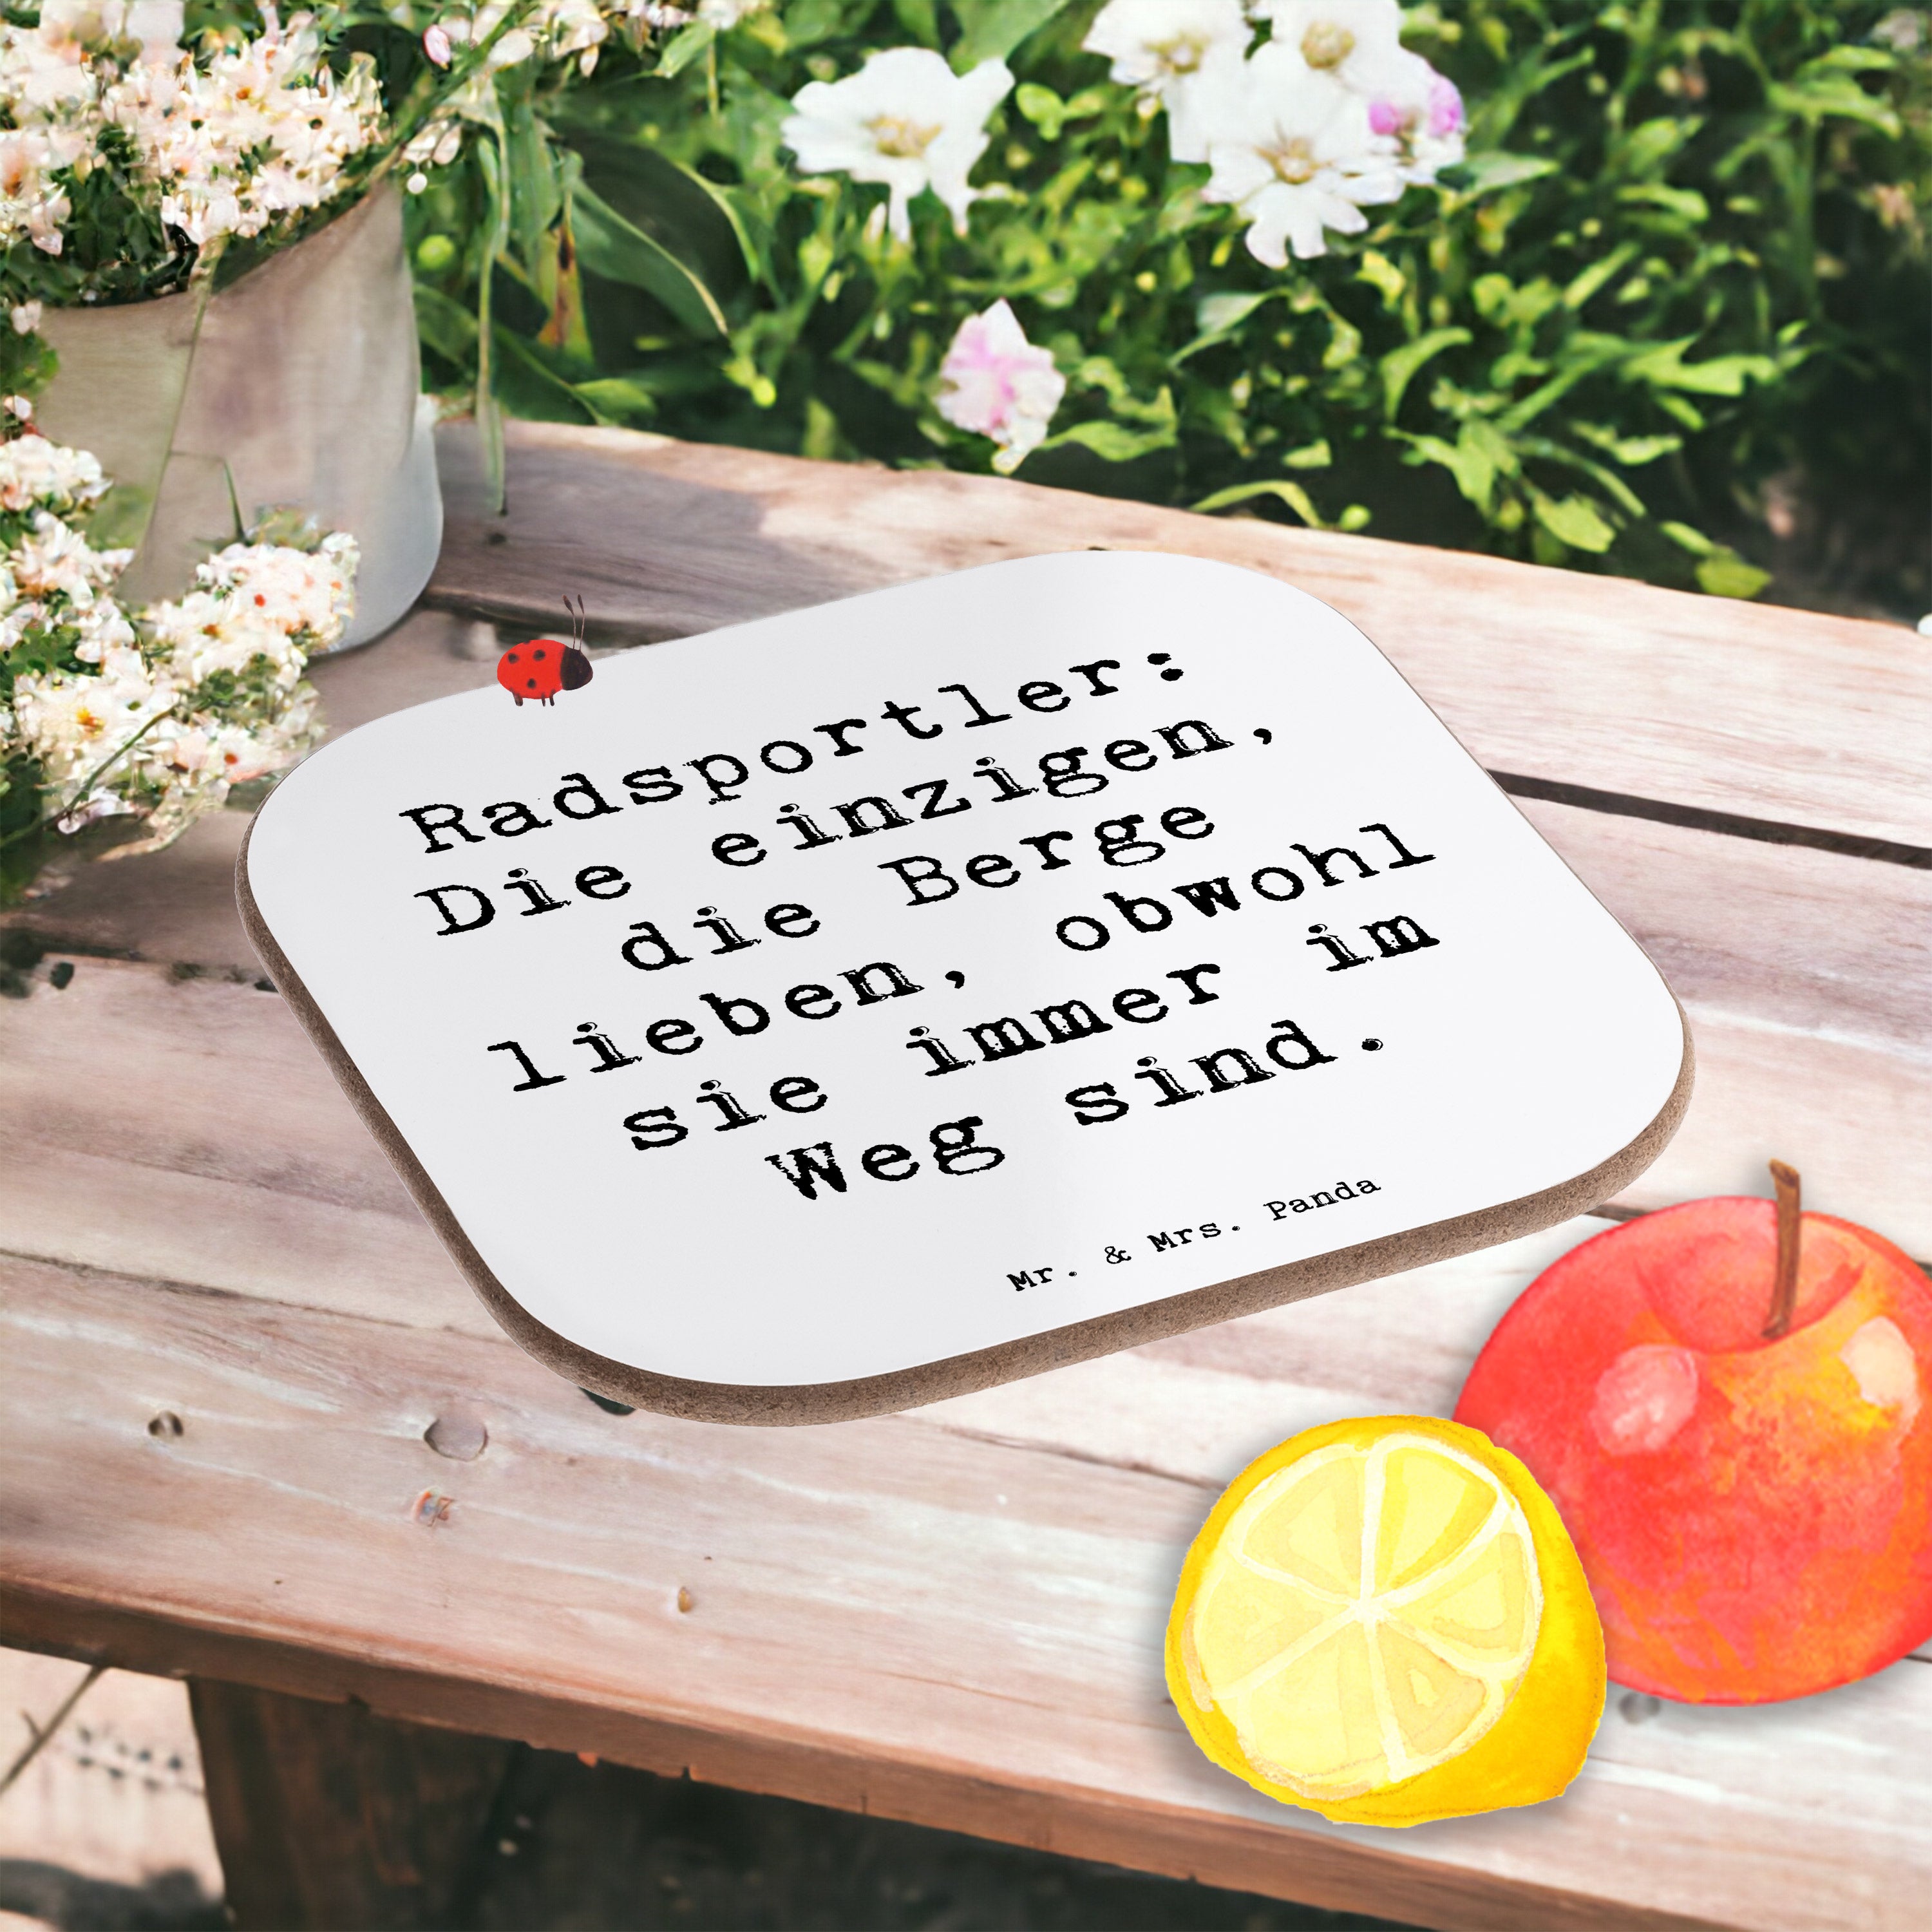 Radsportler:
Die einzigen,
die Berge
lieben, obwohl
sie immer im
Weg sind.
Mr. & Mrs. Panda